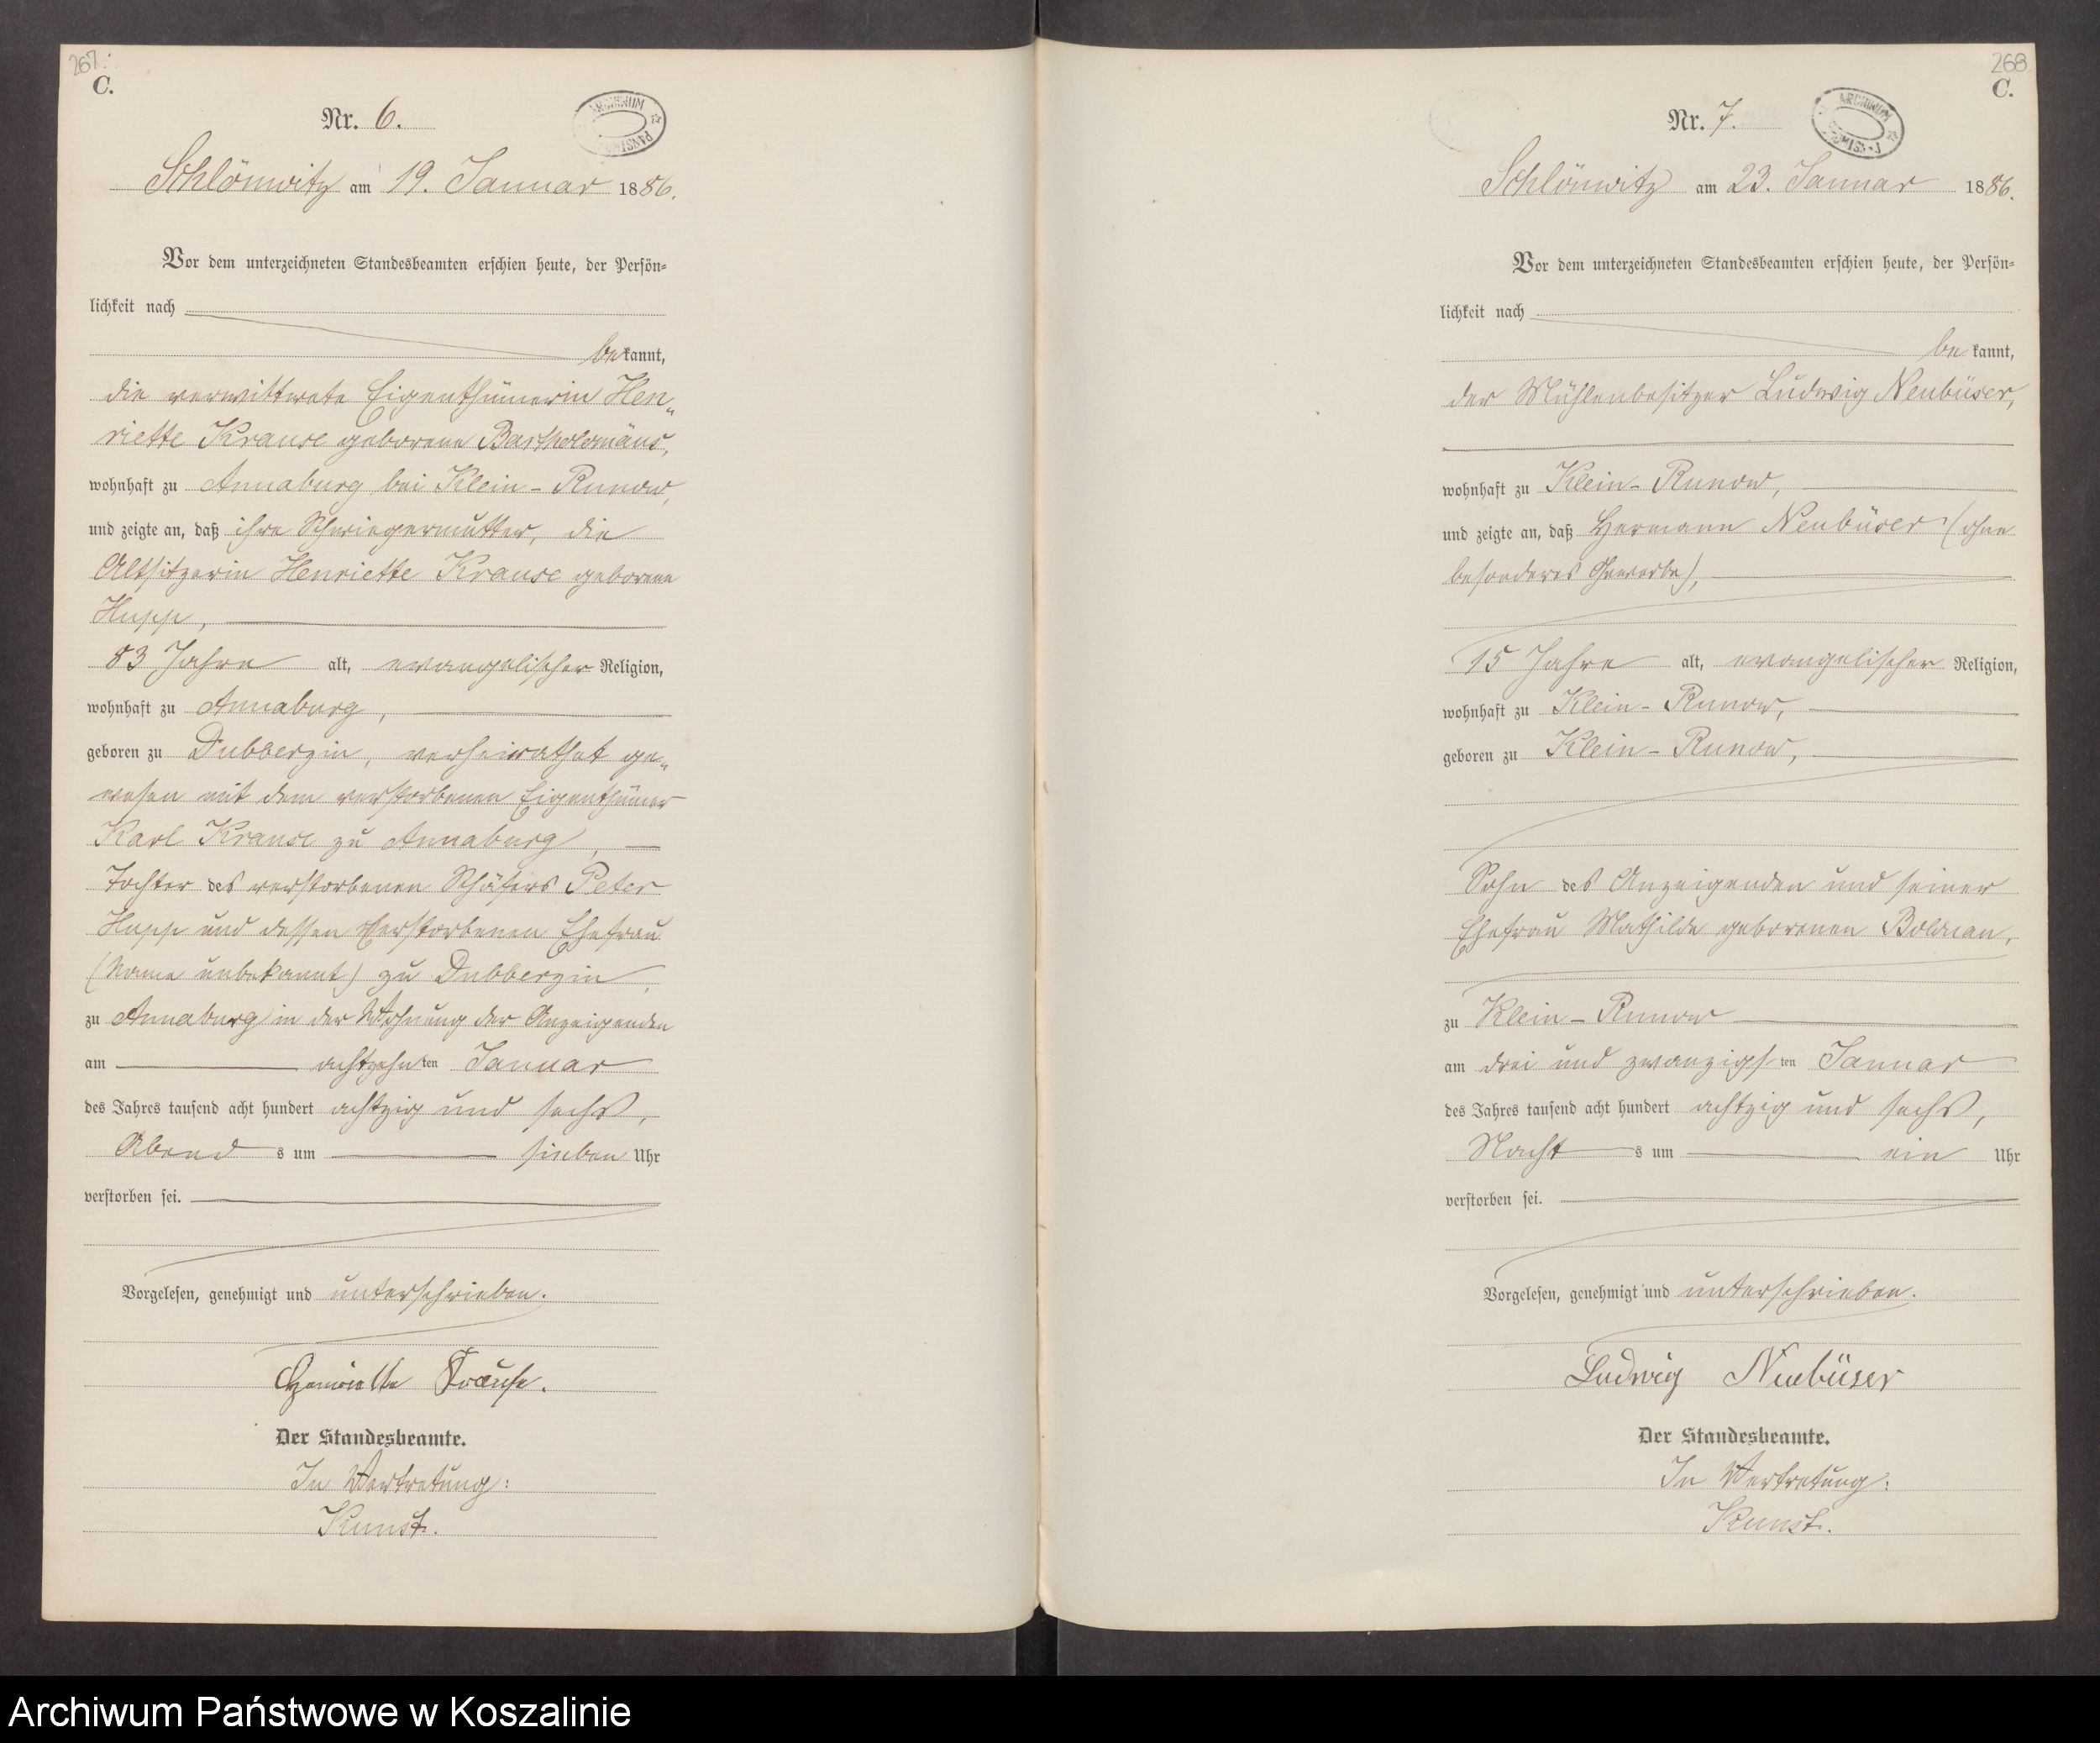 267.
C.
Nr. 6.
ARCHIWUM PAŃSTWO
Schlönwitz am 19. Januar 1886.
Vor dem unterzeichneten Standesbeamten erschien heute, der Persön-
lichkeit nach
bekannt,
die verwittwete Eigenthümerin Hen„
riette Krause geborene Bartholomäus,
wohnhaft zu Annaburg bei Klein-Runow,
und zeigte an, daß ihre Schwiegermutter, die
Altsitzerin Henriette Krause geborene
Hupp,
83 Jahre alt, evangelischer Religion,
wohnhaft zu Annaburg,
geboren zu Dubberzin, verheirathet ge„
wesen mit dem verstorbenen Eigenthümer
Karl Krause zu Annaburg,
Tochter des verstorbenen Schäfers Peter
Hupp und dessen verstorbenen Ehefrau
(Name unbekannt) zu Dubberzin,
zu Annaburg in der Wohnung der Anzeigenden
am achtzehnten Januar
des Jahres tausend acht hundert achtzig und sechs,
Abends um sieben Uhr
verstorben sei.
Vorgelesen, genehmigt und unterschrieben.
Henriette Krause.
Der Standesbeamte.
In Vertretung:
Kunst.
268
C.
Nr. 7.
ARCHIWUM
Schlönwitz am 23. Januar 1886.
Vor dem unterzeichneten Standesbeamten erschien heute, der Persön-
lichkeit nach
bekannt,
der Mühlenbesitzer Ludwig Neubüser,
wohnhaft zu Klein-Runow,
und zeigte an, daß Hermann Neubüser (ohne
besonderes Gewerbe),
15 Jahre alt, evangelischer Religion,
wohnhaft zu Klein-Runow,
geboren zu Klein-Runow,
Sohn des Anzeigenden und seiner
Ehefrau Mathilde geborenen Boldnan,
zu Klein-Runow
am drei und zwanzigsten Januar
des Jahres tausend acht hundert achtzig und sechs,
Nachts um ein Uhr
verstorben sei.
Vorgelesen, genehmigt und unterschrieben.
Ludwig Neubüser
Der Standesbeamte.
In Vertretung:
Kunst.
Archiwum Państwowe w Koszalinie